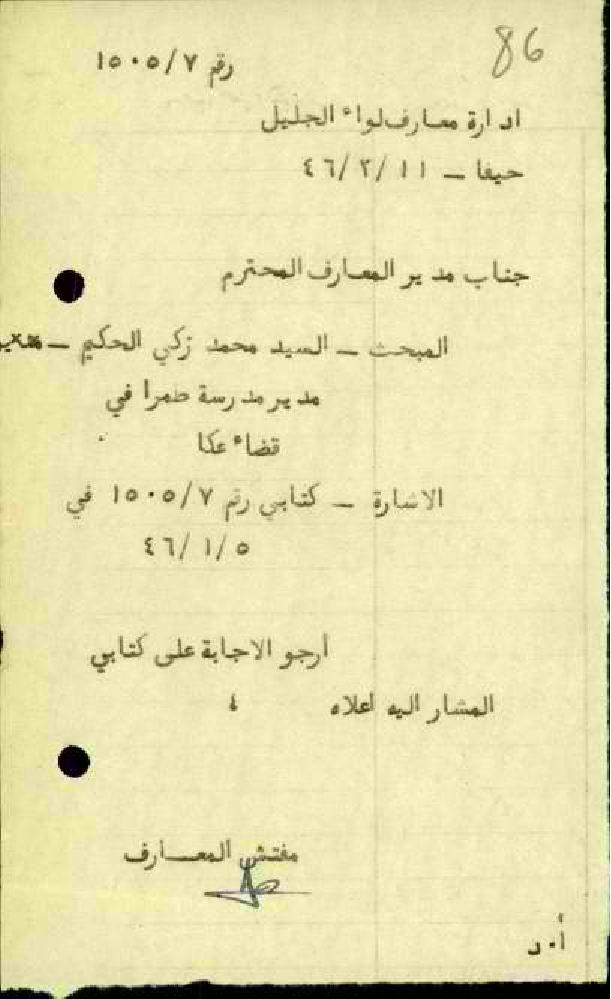 86
رقم ١٥٠٥/٧
ادارة معارف لواء الجليل
حيفا ـ ٤٦/٢/١١
جناب مدير المعارف المحترم
المبحث ـ السيد محمد زكي الحكيم ـ
مدير مدرسة طمرا في
قضاء عكا
الاشارة ـ كتابي رقم ١٥٠٥/٧ في
٤٦/١/٥
أرجو الاجابة على كتابي
المشار اليه اعلاه ،
مفتش المعــارف
أ٠د